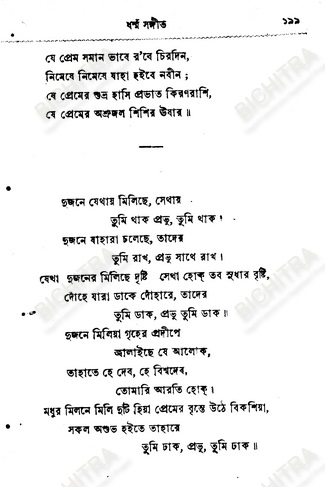 ধর্ম্ম সঙ্গীত ১৯৯
যে প্রেম সমান ভাবে র'বে চিরদিন,
নিমেষে নিমেষে যাহা হইবে নবীন ;
যে প্রেমের শুভ্র হাসি প্রভাত কিরণরাশি,
যে প্রেমের অশ্রুজল শিশির উষার ॥
দুজনে যেথায় মিলিছে, সেথায়
তুমি থাক প্রভু, তুমি থাক !
দুজনে যাহারা চলেছে, তাদের
তুমি রাখ, প্রভু সাথে রাখ ।
যেথা দুজনের মিলিছে দৃষ্টি সেথা হোক্ তব সুধার বৃষ্টি,
দোঁহে যারা ডাকে দোঁহারে, তাদের
তুমি ডাক, প্রভু তুমি ডাক ॥
দুজনে মিলিয়া গৃহের প্রদীপে
জ্বালাইছে যে আলোক,
তাহাতে হে দেব, হে বিশ্বদেব,
তোমারি আরতি হোক্ ।
মধুর মিলনে মিলি দুটি হিয়া প্রেমের বৃন্তে উঠে বিকশিয়া,
সকল অশুভ হইতে তাহারে
তুমি ঢাক, প্রভু, তুমি ঢাক ॥
BICHITRA